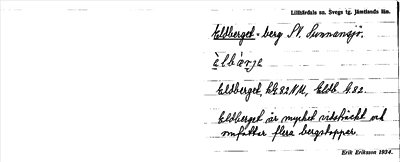 Lillhärdals sn. Svegs tg. Jämtlands län.
Eldberget - berg SV. Sunnansjö.
Eldberget, Eldb. 82.
Eldberget är mycket vidsträckt och
omfattar flera bergstoppar.
Erik Eriksson 1934.